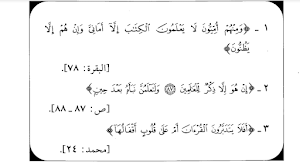 ١ - ﴿وَمِنْهُمْ أُمِّيُّونَ لَا يَعْلَمُونَ الْكِتَابَ إِلَّا أَمَانِيَّ وَإِنْ هُمْ إِلَّا
يَظُنُّونَ﴾
[البقرة: ٧٨].
٢ - ﴿إِنْ هُوَ إِلَّا ذِكْرٌ لِّلْعَالَمِينَ ۝٨٧ وَلَتَعْلَمُنَّ نَبَأَهُ بَعْدَ حِينٍ﴾
[ص: ٨٧ - ٨٨].
٣ - ﴿أَفَلَا يَتَدَبَّرُونَ الْقُرْءَانَ أَمْ عَلَىٰ قُلُوبٍ أَقْفَالُهَا﴾
[محمد: ٢٤].